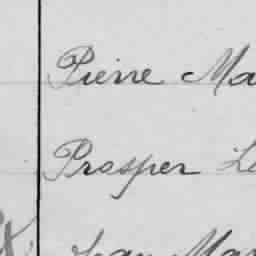 Pierre Ma
Prosper Le
Jean Mar